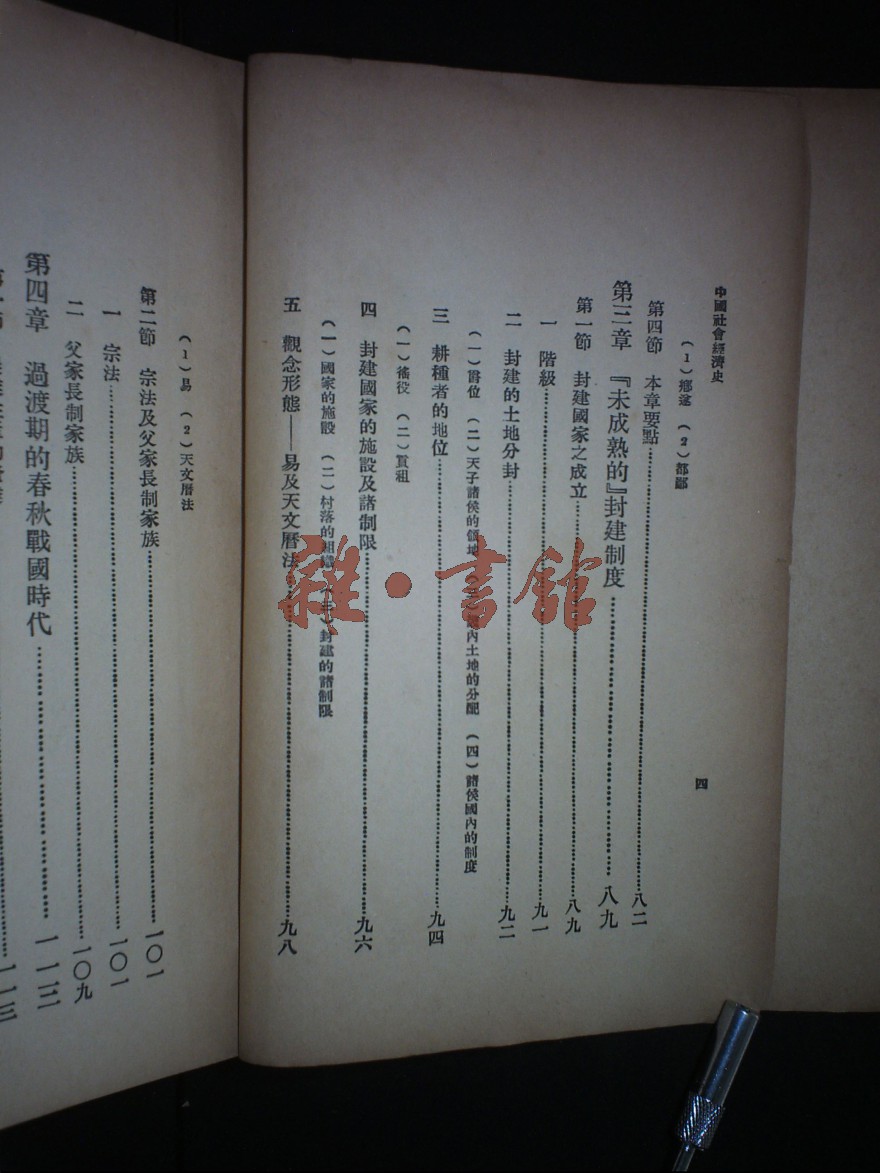 中國社會經濟史
四
(1)鄉遂 (2)都鄙
第四節 本章要點……八二
第三章 『未成熟的』封建制度……八九
第一節 封建國家之成立……八九
一 階級……九一
二 封建的土地分封……九二
(一)爵位 (二)天子諸侯的領地 內土地的分配 (四)諸侯國內的制度
三 耕種者的地位……九四
(一)徭役 (二)貢租
四 封建國家的施設及諸制限……九六
(一)國家的施設 (二)村落的組織 (三)封建的諸制限
五 觀念形態——易及天文曆法……九八
(1)易 (2)天文曆法
第二節 宗法及父家長制家族……一〇一
一 宗法……一〇一
二 父家長制家族……一〇九
第四章 過渡期的春秋戰國時代……一一三
一一三
雜·書館